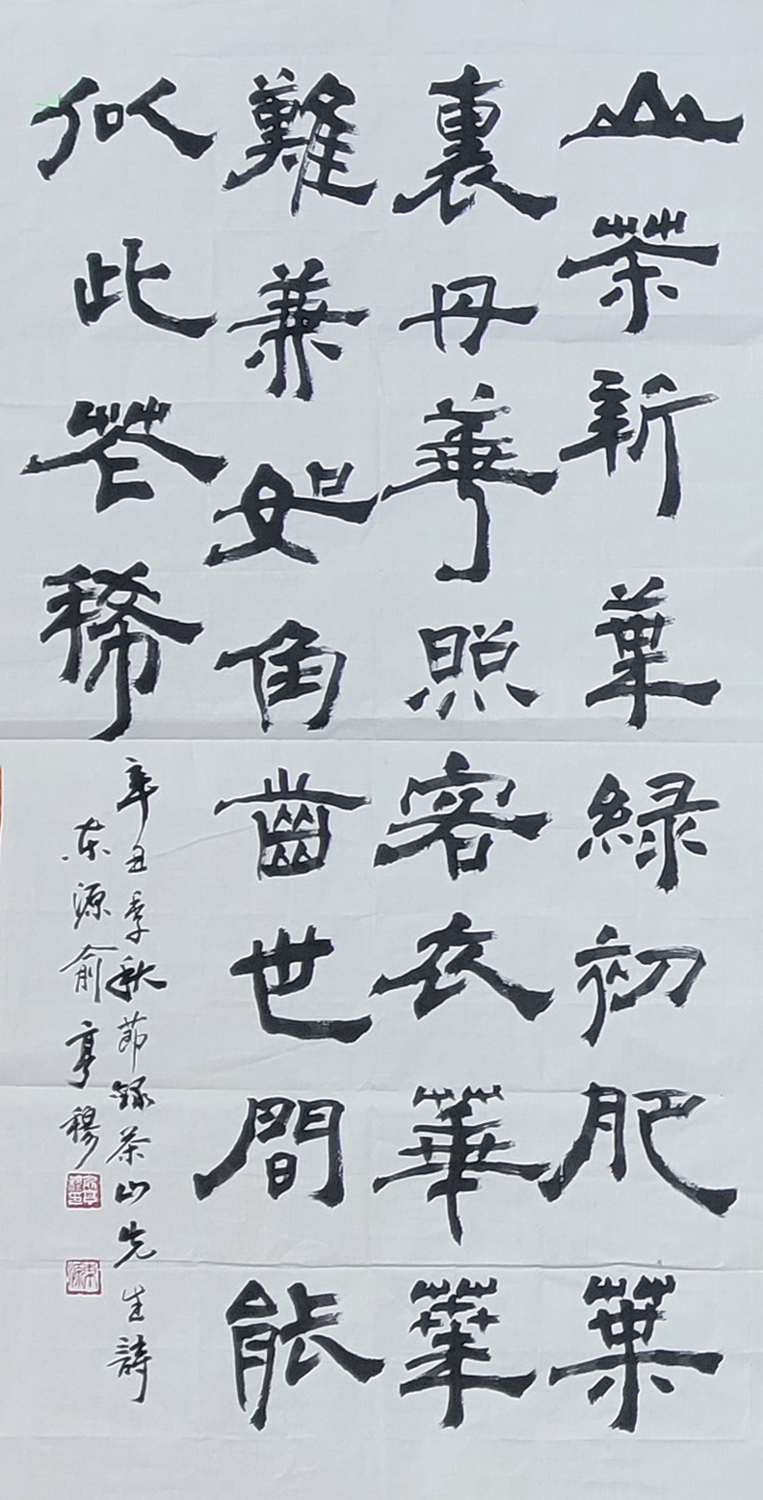 山茶新葉緑初肥葉
裏丹華照客衣華葉
難兼如角齒世間能
似此花稀
辛丑季秋節録茶山先生詩
东源俞亨穆